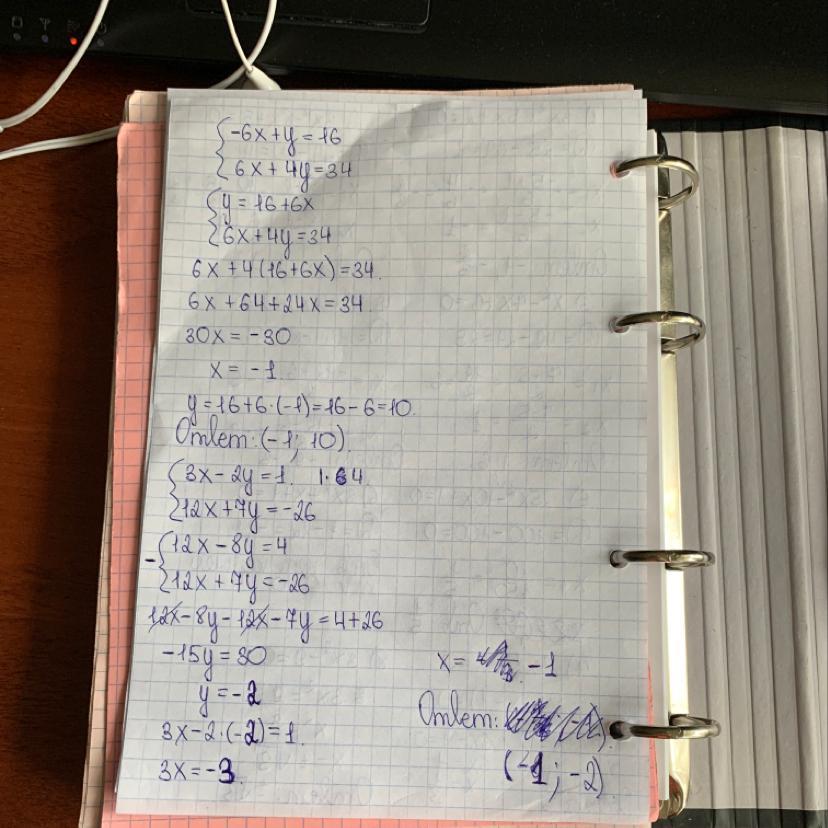 -6x+y=16
6x+4y=34
y=16+6x
6x+4y=34
6x+4(16+6x)=34.
6x+64+24x=34
30x=-30
x=-1
y=16+6·(-1)=16-6=10.
Ответ: (-1; 10).
3x-2y=1. |·4.
12x+7y=-26
- 12x-8y=4
12x+7y=-26
12x-8y-12x-7y=4+26
-15y=30
y=-2
3x-2·(-2)=1.
3x=-3.
x= -1
Ответ:
(-1; -2)